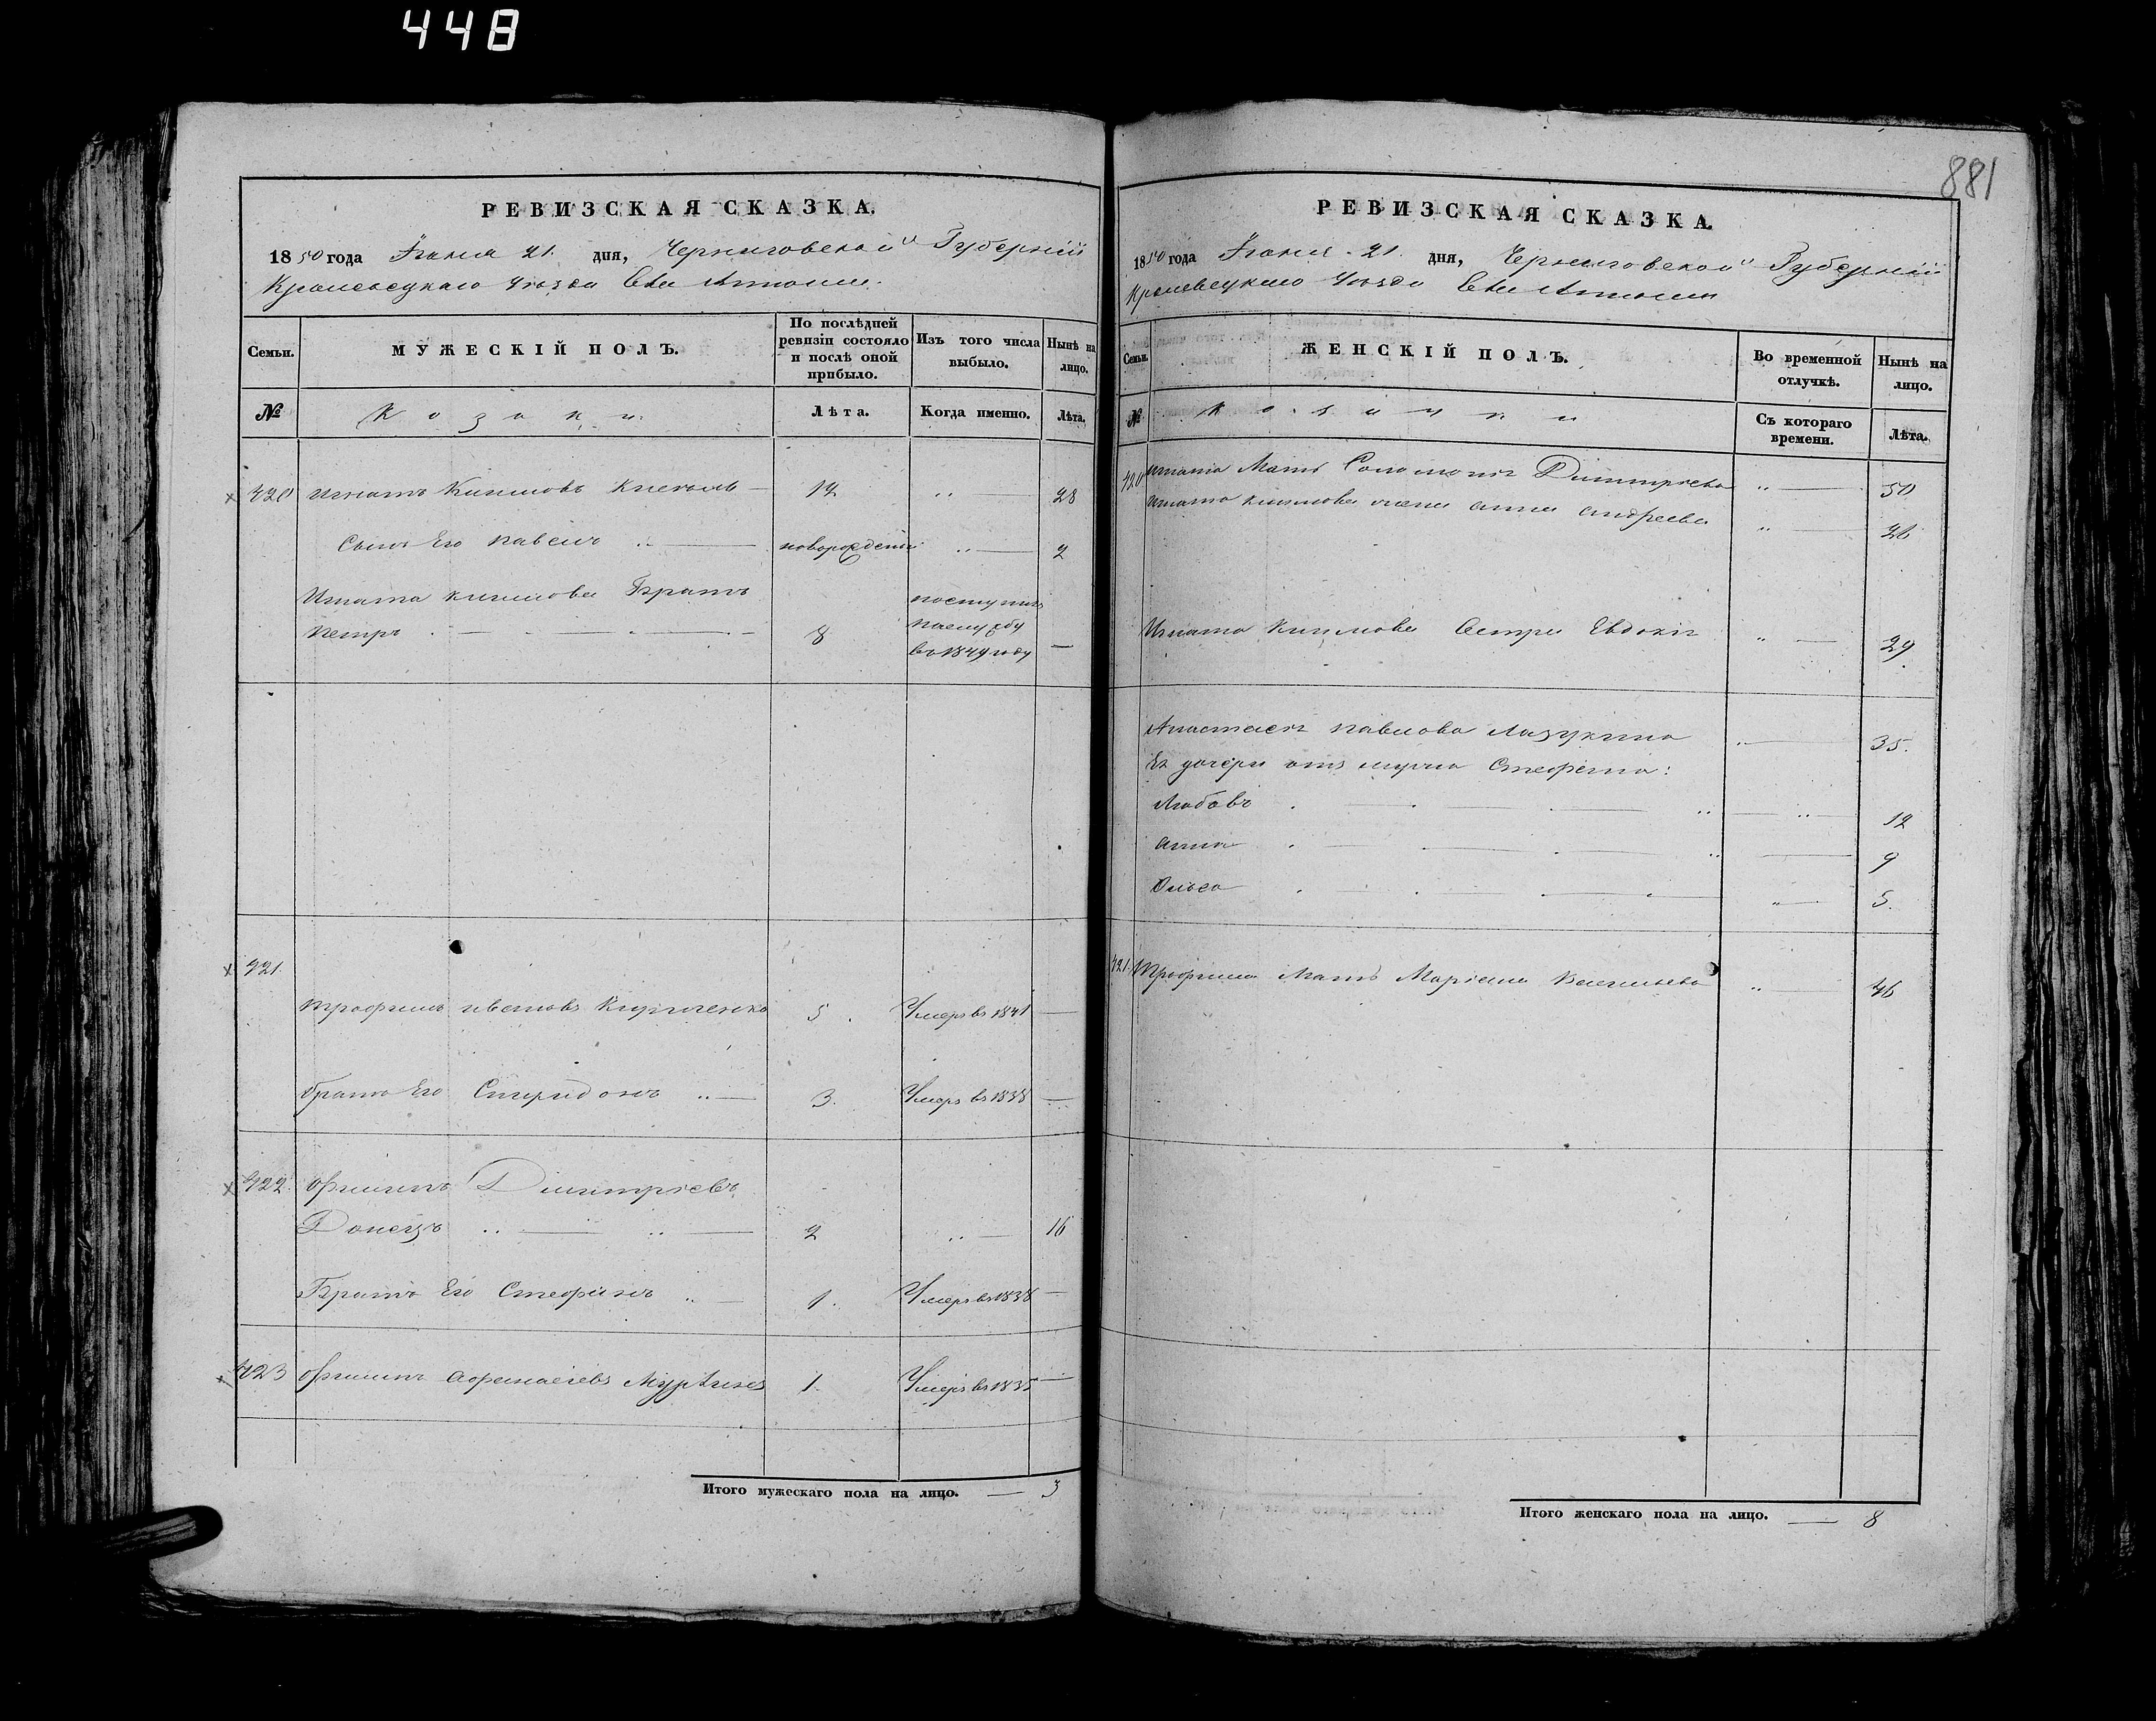 448
РЕВИЗСКАЯ СКАЗКА.
1850 года Іюня 21. дня, Черниговской Губерніи
Кролевецкаго Уѣзда
Семьи.
МУЖЕСКІЙ ПОЛЪ.
По послѣдней ревизіи состояло и послѣ оной прибыло.
Изъ того числа выбыло.
Нынѣ на лицо.
№
Козаки
Лѣта.
Когда именно.
Лѣта.
420 Игнатъ Климовъ 14 28
Сынъ Его Павелъ новорожденный 2
Игната Климова Братъ поступилъ
Петръ 8 на службу
въ 1849 году
421.
Трофимъ Ивановъ 5 Умеръ въ 1841
братъ Его Спиридонъ 3. Умеръ въ 1838
422 Филипъ Димитріевъ
Донецъ 2 16
Братъ Его Стефанъ 1. Умеръ въ 1838
423 Филипъ Афанасіевъ 1. Умеръ въ 1835
Итого мужескаго пола на лицо. 3
881
РЕВИЗСКАЯ СКАЗКА.
1850 года Іюня 21. дня, Черниговской Губерніи
Кролевецкаго Уѣзда
Семьи.
ЖЕНСКІЙ ПОЛЪ.
Во временной отлучкѣ.
Нынѣ на лицо.
№
Козачки
Съ котораго времени.
Лѣта.
420 Игната Мать Соломонія Димитріева 50
Игната Климова жена Анна Андреева 26
Игната Климова Сестра Евдокія 29
Анастасія Павлова 35.
Ея дочери отъ мужа Стефана:
Любовь 12
Анна 9
Ольга 5.
421. Трофима Мать Маріана Васильева 46
Итого женскаго пола на лицо. 8